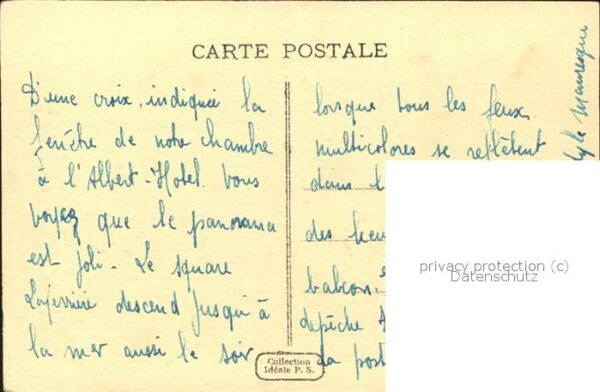 CARTE POSTALE
D'une croix, indiquée la
fenêtre de notre chambre
à l'Albert-Hotel. Vous
voyez que le panorama
est joli - Le square
Laferrière descend jusqu'à
la mer aussi le soir
lorsque tous les feux
multicolores se reflètent
dans l
des heu
balcon.
depêche
la post
style Mauresque
privacy protection (c)
Datenschutz
Collection
Idéale P. S.